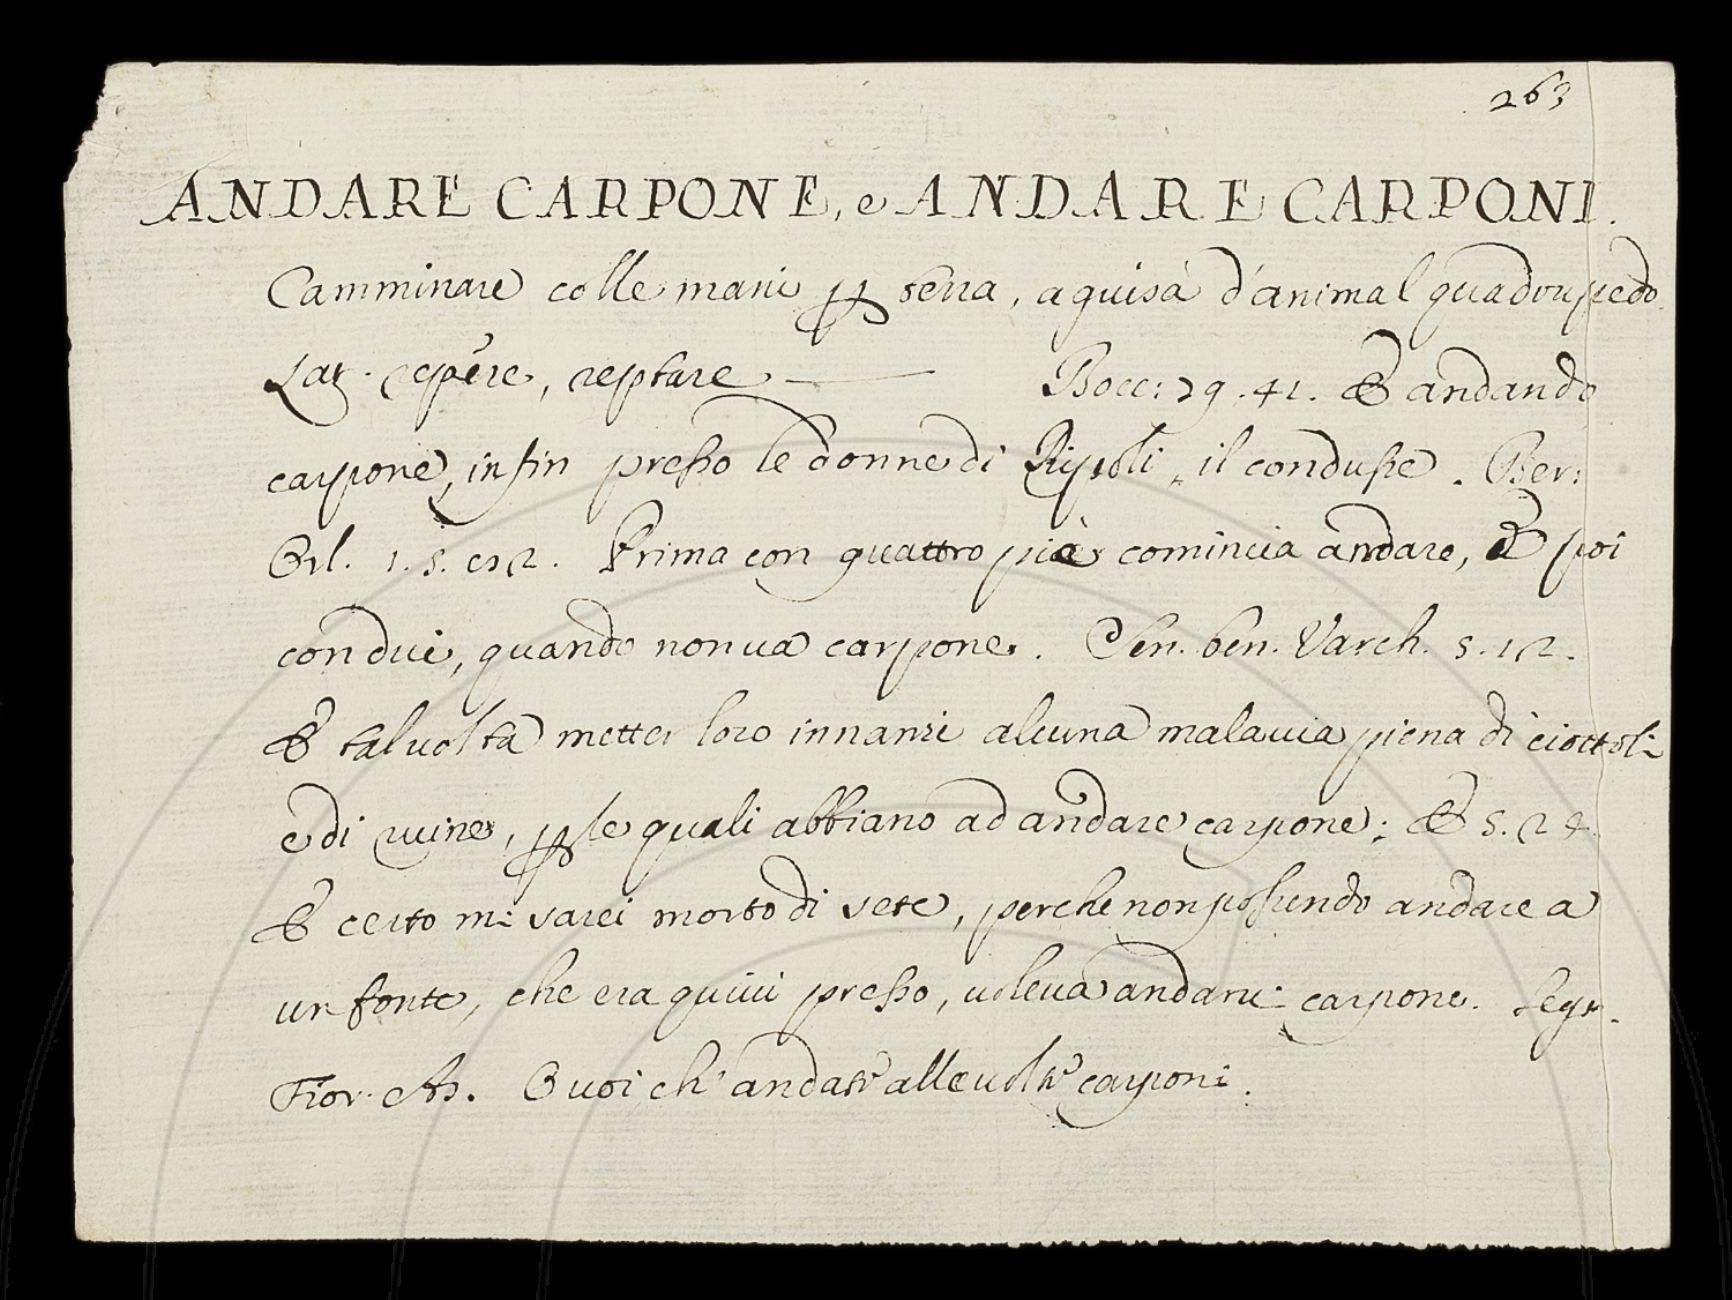 263
ANDARE CARPONE, e ANDARE CARPONI.
Camminare colle mani p terra, a guisa d'animal quadrupedo.
Lat. repĕre, reptare — Bocc: 79. 41. E andando
carpone, infin presso le donne di Ripoli, il condusse. Ber:
Orl. 1. 5. Prima con quattro piè comincia andare, E poi
con dui, quando non va carpone. Sen. ben. Varch. 5. 12.
E talvolta metter loro innanzi alcuna malavia piena di ciottoli
e di ruine, p le quali abbiano ad andare carpone; E 5. 24.
E certo mi sarei morto di sete, perche non possendo andare a
un fonte, che era quivi presso, voleva andarvi carpone. Segr.
Fior. As. O voi ch' andate alle volte carponi.